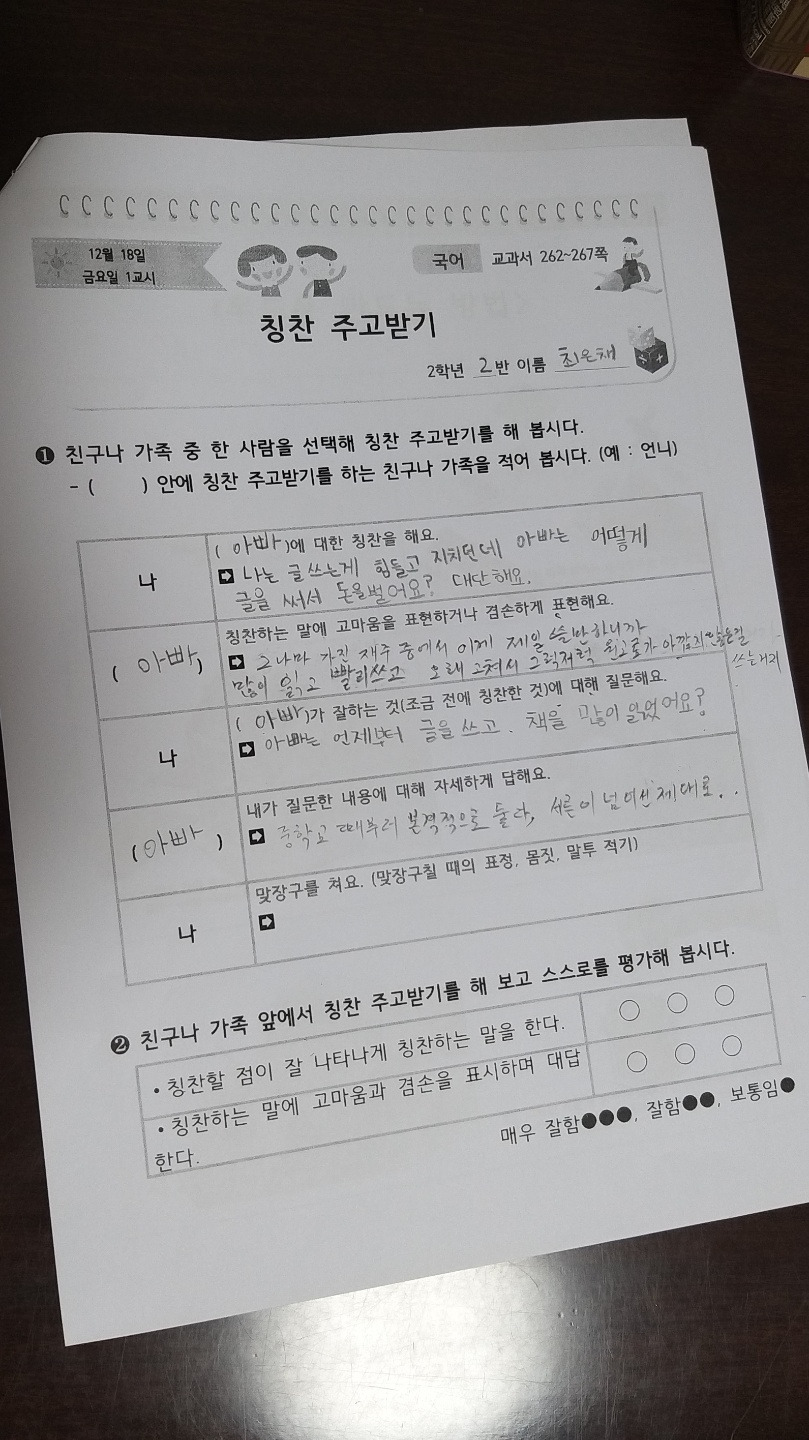 12월 18일
금요일 1교시
국어 교과서 262~267쪽
칭찬 주고받기
2학년 2반 이름 최은채
❶ 친구나 가족 중 한 사람을 선택해 칭찬 주고받기를 해 봅시다.
- ( ) 안에 칭찬 주고받기를 하는 친구나 가족을 적어 봅시다. (예 : 언니)
나
( 아빠 )에 대한 칭찬을 해요.
➡ 나는 글쓰는게 힘들고 지치던데 아빠는 어떻게
글을 써서 돈을벌어요? 대단해요.
( 아빠 )
칭찬하는 말에 고마움을 표현하거나 겸손하게 표현해요.
➡ 그나마 가진 재주 중에서 이게 제일 쓸만하니까
많이 읽고 빨리쓰고 오래 고쳐서 그럭저럭 원고료가 아깝지 않은길
쓰는거지
나
( 아빠 )가 잘하는 것(조금 전에 칭찬한 것)에 대해 질문해요.
➡ 아빠는 언제부터 글을 쓰고. 책을 많이 읽었어요?
( 아빠 )
내가 질문한 내용에 대해 자세하게 답해요.
➡ 중학교 때부터 본격적으로 둘다, 서른이 넘어선 제대로..
나
맞장구를 쳐요. (맞장구칠 때의 표정, 몸짓, 말투 적기)
➡
❷ 친구나 가족 앞에서 칭찬 주고받기를 해 보고 스스로를 평가해 봅시다.
• 칭찬할 점이 잘 나타나게 칭찬하는 말을 한다. ○ ○ ○
• 칭찬하는 말에 고마움과 겸손을 표시하며 대답 ○ ○ ○
한다.
매우 잘함●●●, 잘함●●, 보통임●